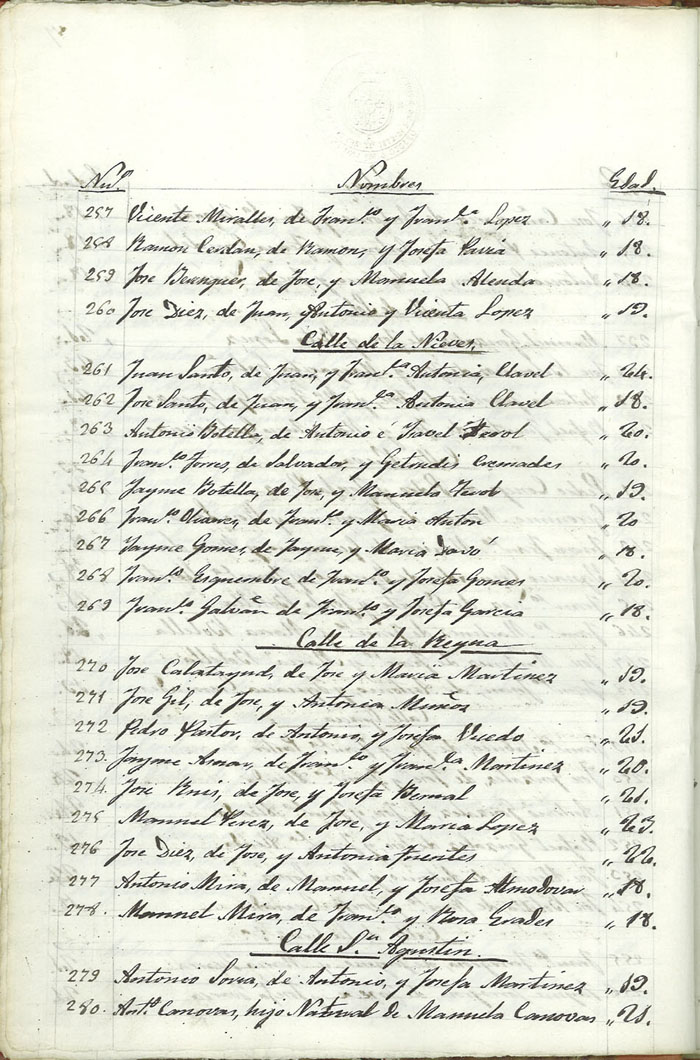 Num.º Nombres Edad.
257 Vicente Miralles, de Fran.co y Fran.ca Lopez " 18.
258 Ramon Cerdan, de Ramon, y Josefa Pavia " 18.
259 Jose Berenguer, de Jose, y Manuela Alenda " 18.
260 Jose Diez, de Juan, Antonio y Vicenta Lopez " 19.
Calle de la Nieves,
261 Juan Santo, de Juan, y Fran.ca Antonia, Clavel " 24.
262 Jose Santo, de Juan, y Fran.ca Antonia Clavel " 18.
263 Antonio Botella, de Antonio é " 20.
264 Fran.co Torres, de Salvador, y Getrudis Cremades " 20.
265 Jayme Botella, de Jose, y Manuela Ferol " 19.
266 Fran.co Olivares, de Fran.co y Maria Anton " 20
267 Jayme Gomes, de Jayme, y Maria Davó " 18.
268 Fran.co Esquembre de Fran.co y Josefa Gomes " 20.
269 Fran.co Galvañ de Fran.co y Josefa Garcia " 18.
Calle de la Reyna
270 Jose Calatayud, de Jose y Maria Martinez " 19.
271 Jose Gil, de Jose, y Antonia Muñoz " 19.
272 Pedro Pastor, de Antonio, y Josefa Vicedo " 21.
273. Jayme Amar, de Fran.co y Fran.ca Martinez " 20.
274. José Ruis, de Jose, y Josefa Bernal " 21.
275 Manuel Perez, de Jose, y Maria Lopez " 23.
276 Jose Diez, de Jose, y Antonia Fuentes " 22.
277 Antonio Mira, de Manuel, y Josefa Almodovar " 18.
278. Manuel Mira, de Fran.co y Rosa Grades " 18.
Calle S.n Agustin.
279 Antonio Soria, de Antonio, y Josefa Martinez " 19.
280. Ant.º Canovas, hijo Natural de Manuela Canovas " 21.